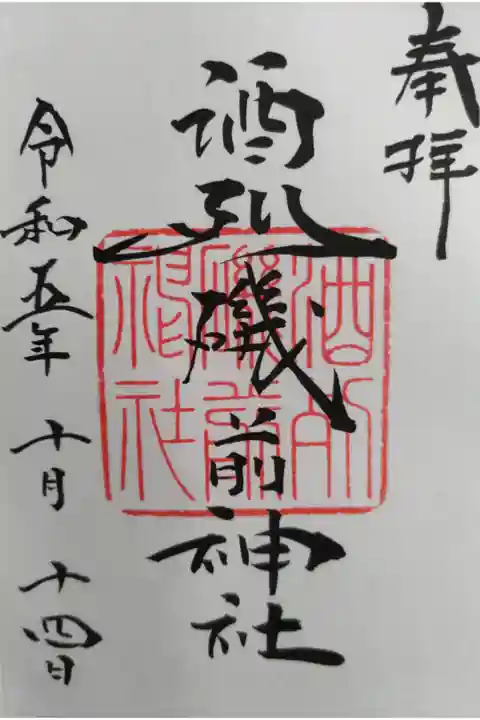 奉拝
酒列磯前神社
酒列
磯前
神社
令和五年十月十四日